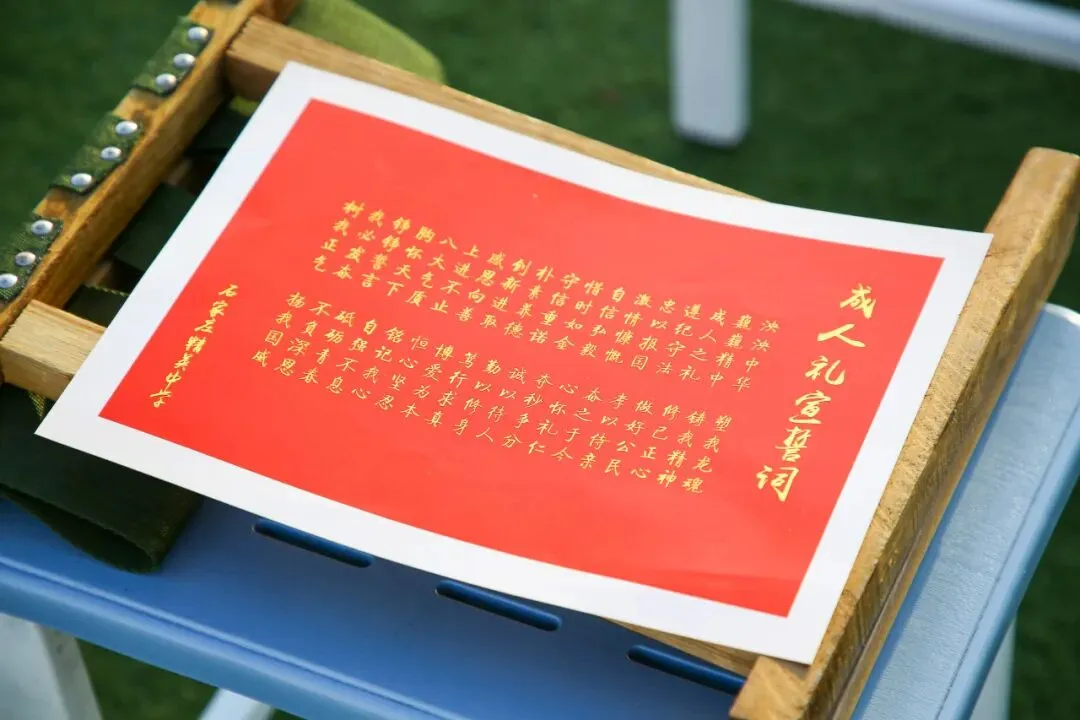 成人礼宣誓词
泱泱中华 塑我龙魂
铸我精神
成人之礼 修己正心
遵纪守法 做好公民
忠以报国 孝以待亲
激情慷慨 奋之于今
自信弘毅 心怀礼仁
惜时如金 夺秒争分
守信重诺 诚以待人
朴素养德 勤以修身
创新进取 笃行求真
感恩向善 博爱为本
上进不止 恒心坚忍
八大气度 铭记我心
胸怀天下 自强不息
铮铮誓言 砥砺青春
我必发奋 不负深恩
树我正气 扬我国威
石家庄精英中学